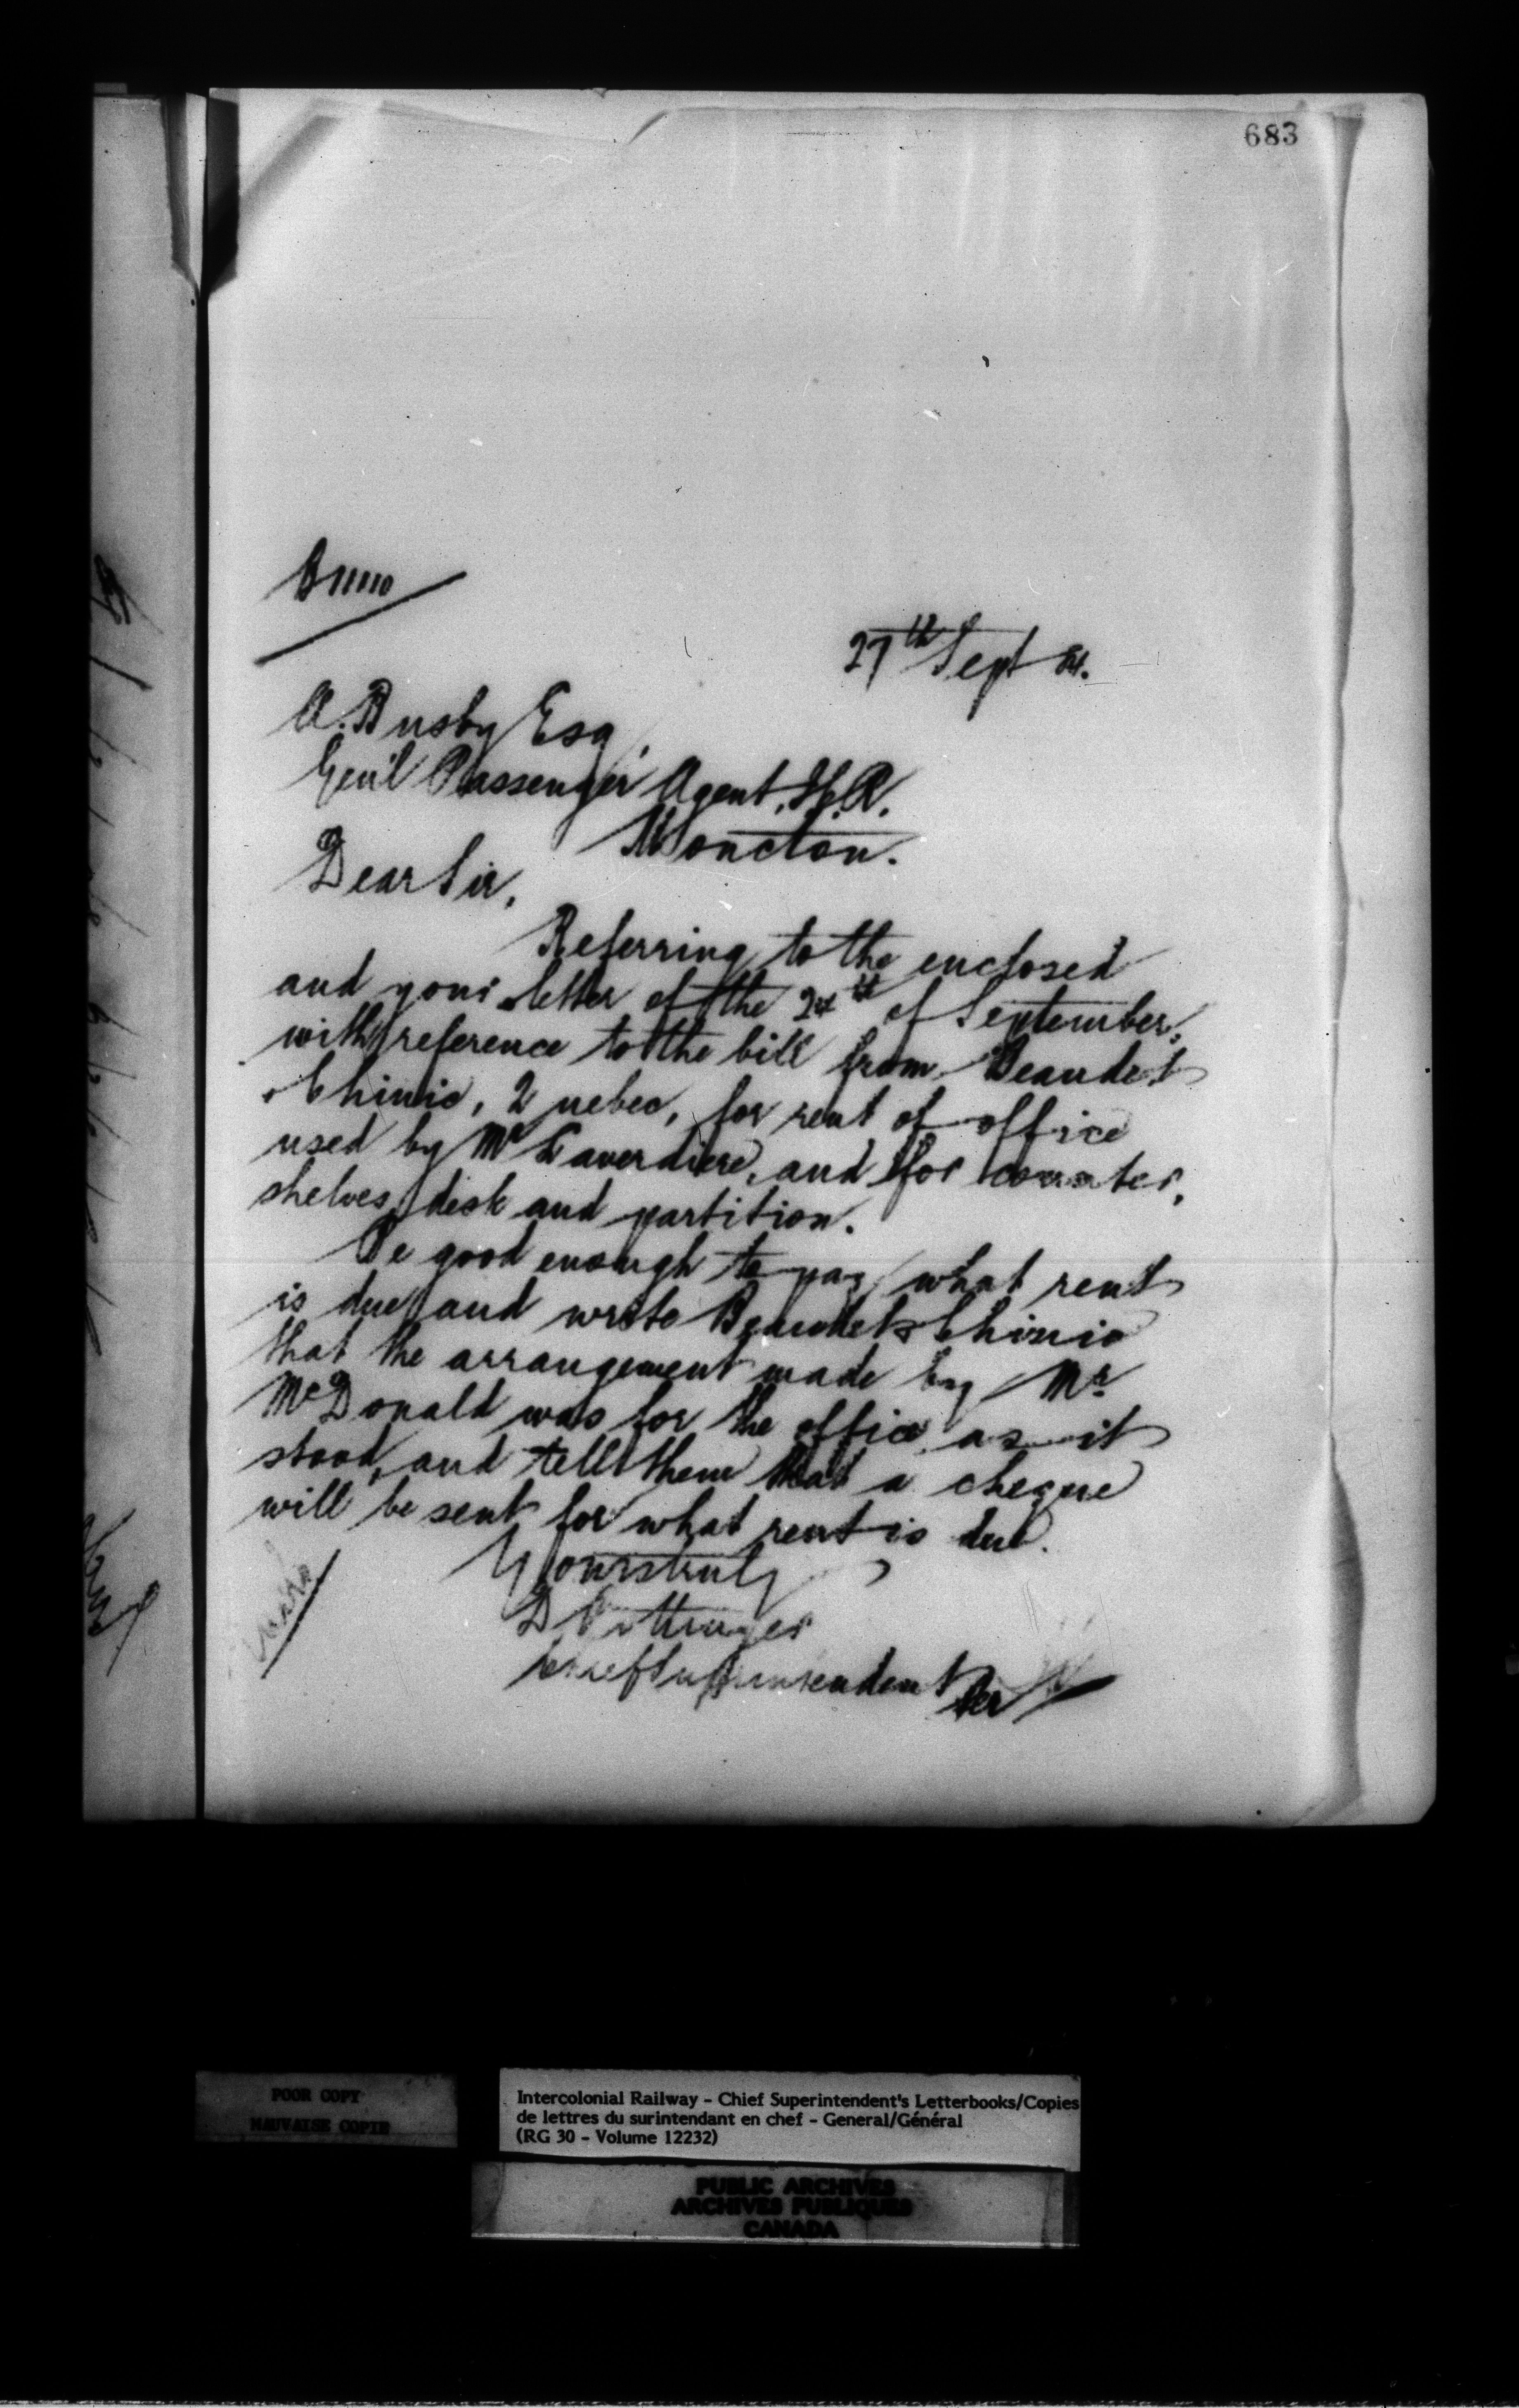 683
27th Sept 81.
A. Busby Esq.
Gen'l Passenger Agent, I.R.
Moncton.
Dear Sir,
Referring to the enclosed
and your letter of the 24th of September,
with reference to the bill from Beaudet
& Chinic, Quebec, for rent of office
used by Mr Laverdiere, and for counter,
shelves, desk and partition.
Be good enough to pay what rent
is due, and write Beaudet & Chinic
that the arrangement made by Mr
McDonald was for the office as it
stood, and tell them that a cheque
will be sent for what rent is due.
Yours truly
D Pottinger
Chief Superintendent
Per
POOR COPY
MAUVAISE COPIE
Intercolonial Railway - Chief Superintendent's Letterbooks/Copies
de lettres du surintendant en chef - General/Général
(RG 30 - Volume 12232)
PUBLIC ARCHIVES
ARCHIVES PUBLIQUES
CANADA